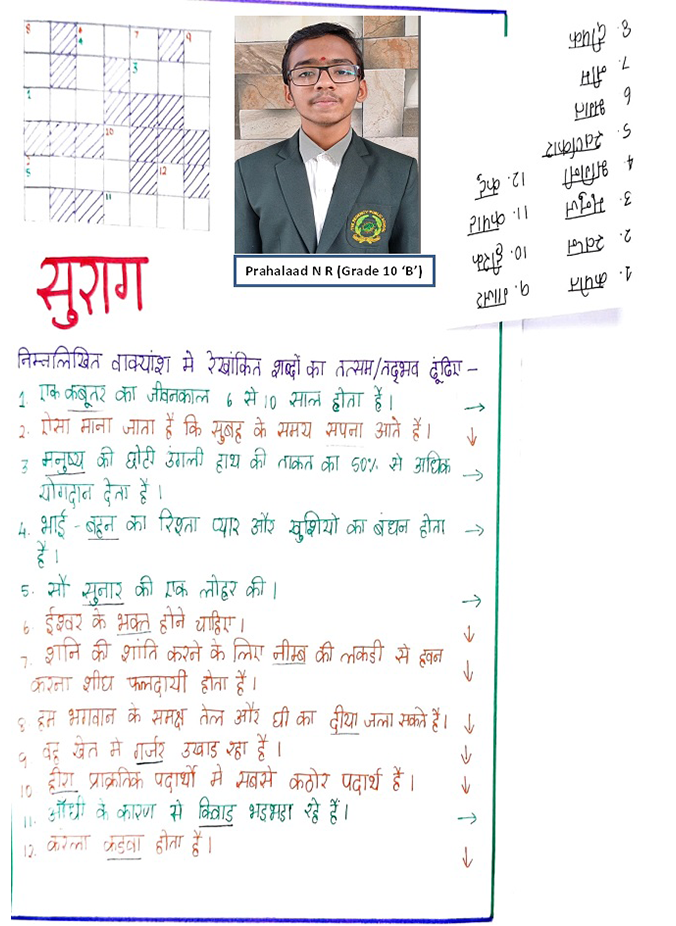 Prahalaad N R (Grade 10 ‘B’)
सुराग
निम्नलिखित वाक्यांश मे रेखांकित शब्दों का तत्सम/तद्भव ढूंढिए -
1. एक कबूतर का जीवनकाल 6 से 10 साल होता है। →
2. ऐसा माना जाता है कि सुबह के समय सपना आते है। ↓
3 मनुष्य की छोटी उंगली हाथ की ताकत का 50% से अधिक →
योगदान देता है।
4. भाई - बहन का रिश्ता प्यार और खुशियो का बंधन होता →
है।
5. सौ सुनार की एक लोहर की। →
6. ईश्वर के भक्त होने चाहिए। ↓
7. शनि की शांति करने के लिए नीम्ब की लकडी से हवन ↓
करना शीघ्र फलदायी होता है।
8 हम भगवान के समक्ष तेल और घी का दीया जला सकते है। ↓
9 वह खेत मे गर्जर उखाड रहा है। ↓
10 हीरा प्राक्रतिक पदार्थो मे सबसे कठोर पदार्थ है। ↓
11. आँधी के कारण से किवाड भडभडा रहे है। →
12. करेला कडवा होता है। ↓
1. कपोत
2. स्वप्न
3. मनुज
4. भगिनी
5. स्वर्णकार
6 भगत
7. नीम
8. दीपक
9. गाजर
10. हीरक
11. कपाट
12. कटु